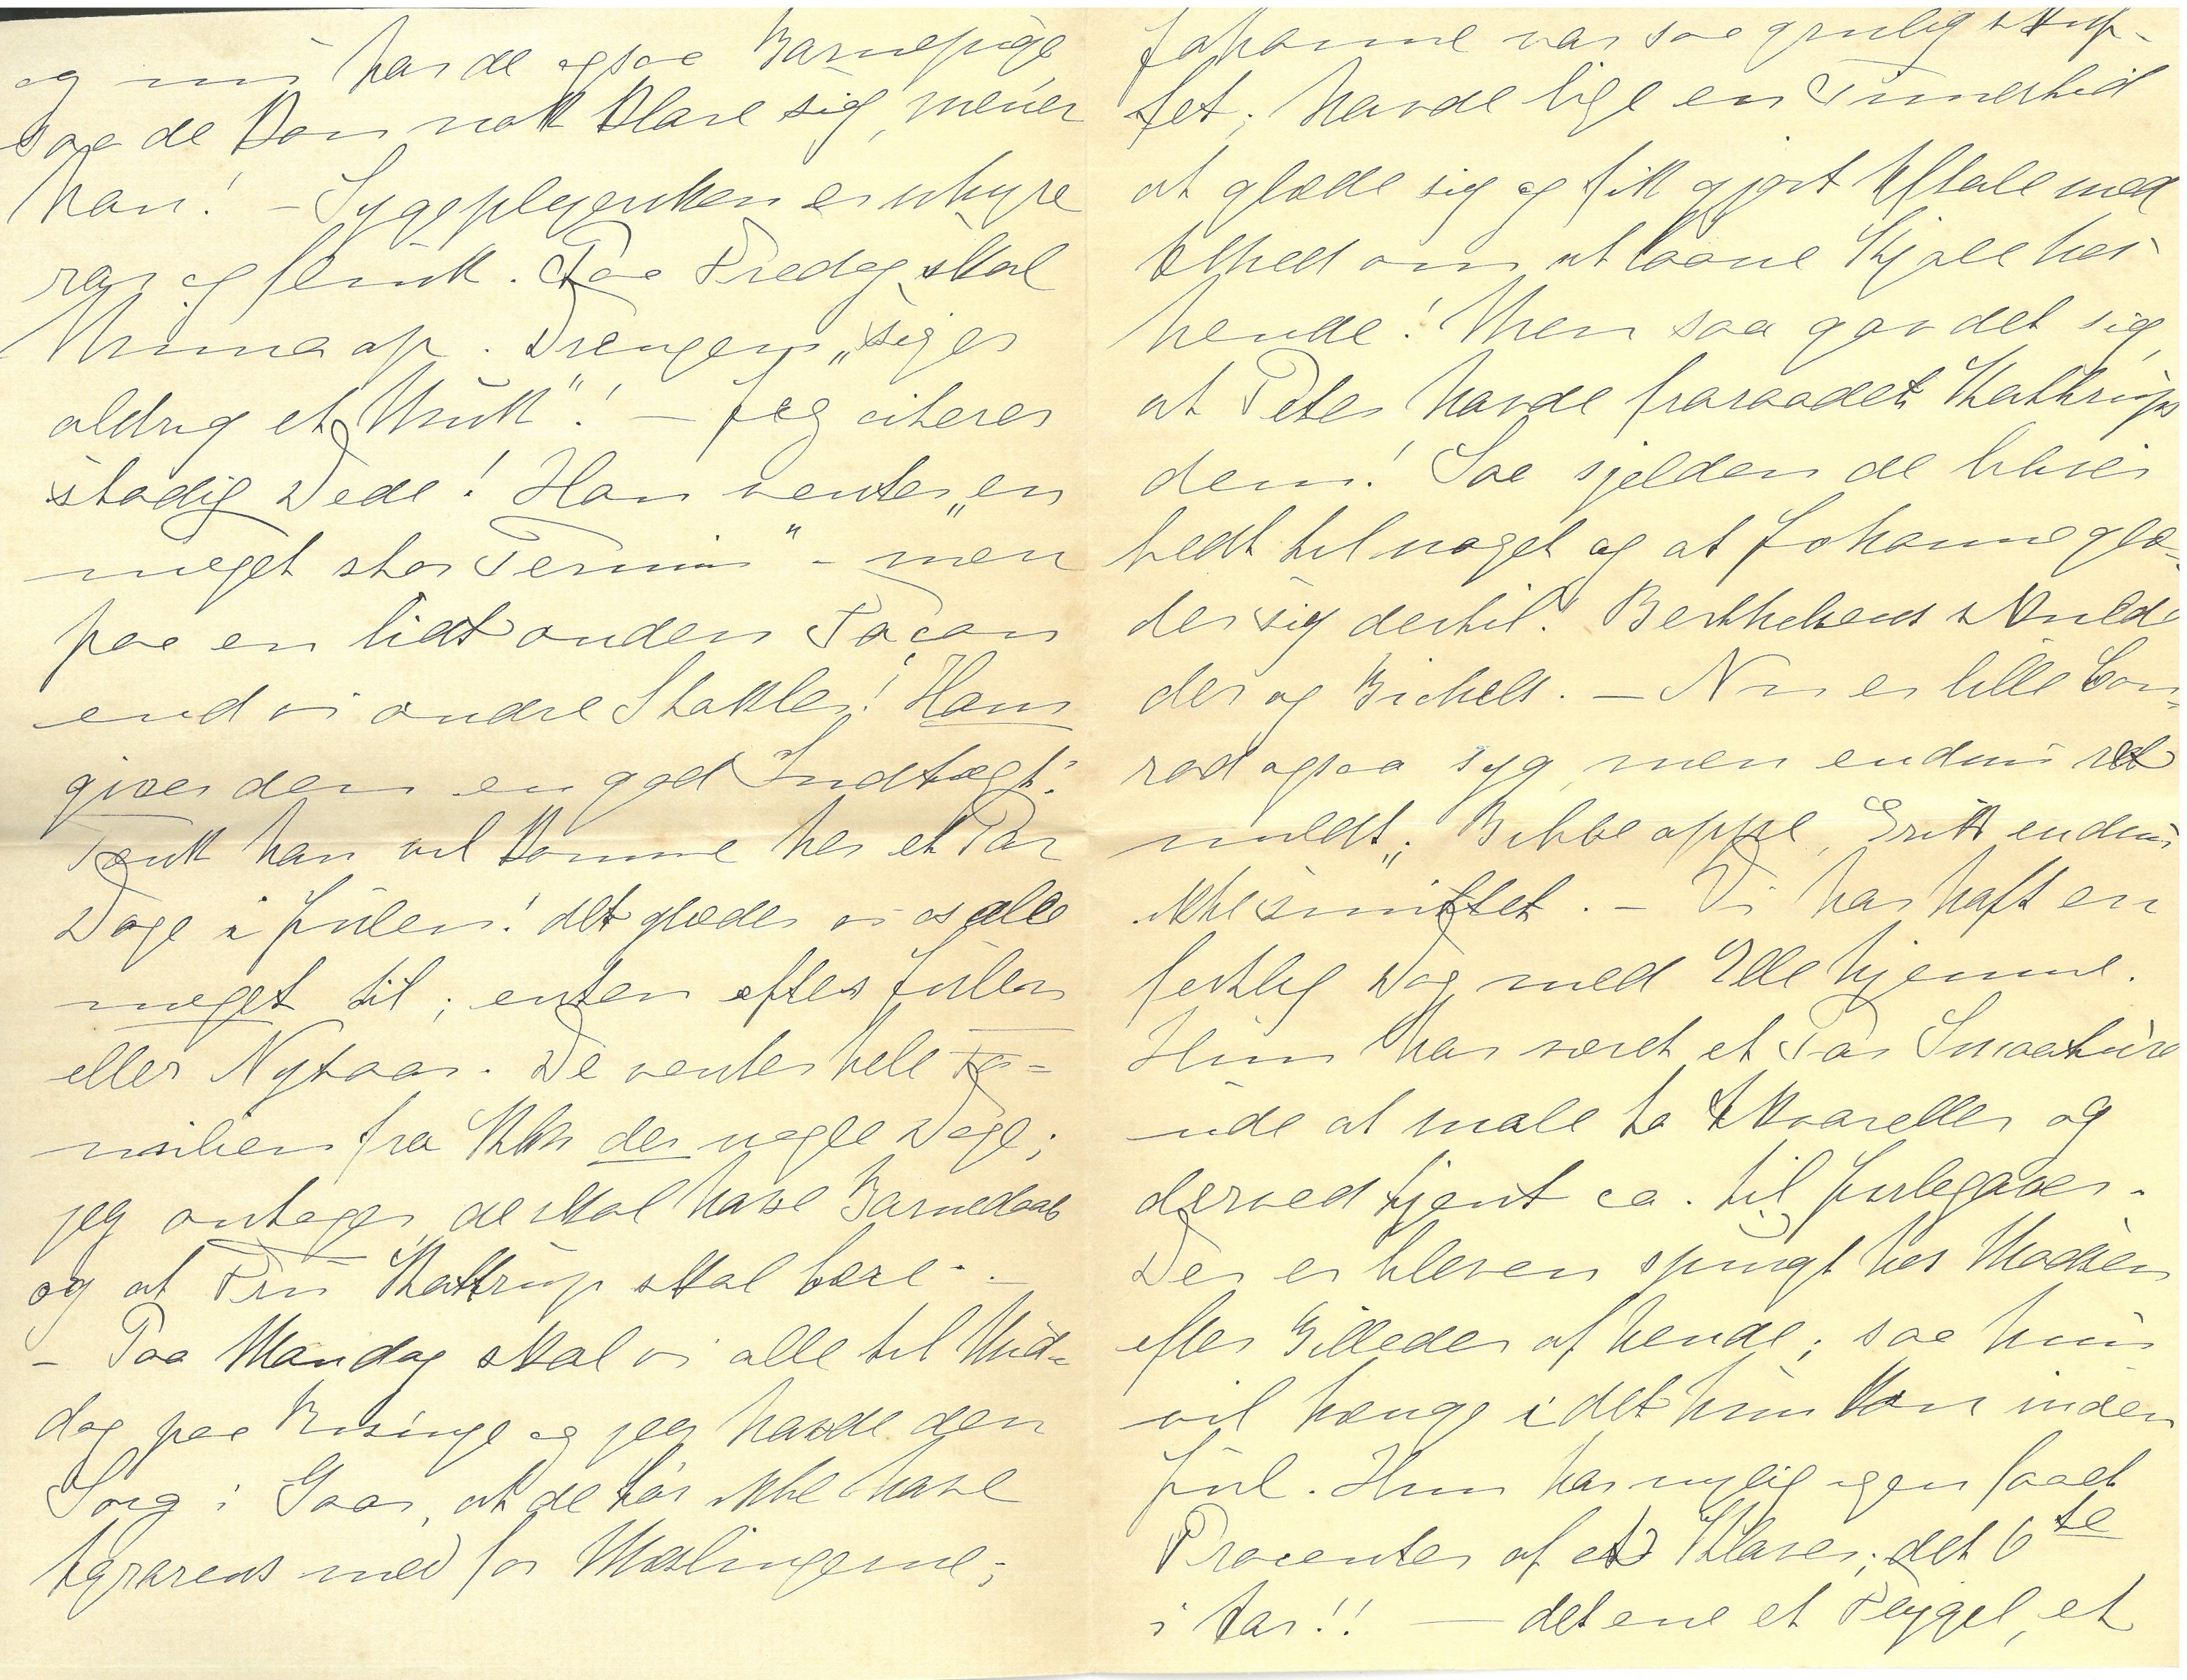 og nu har de ogsaa Barnepige
saa de kan nok klare sig, mener
han! – Sygeplejersken er uhyre
rar og flink. Paa Fredag skal
Minna op. Drengen „siger
aldrig et Muk”! – Jeg citerer
stadig Dede! Han venter „en
meget stor Termin” – men
paa en lidt anden Façon
end vi andre Stakler! Ham
giver den en god Indtægt!
Tænk han vil komme her et Par
Dage i Julen! det glæder vi os alle
meget til; enten efter Julen
eller Nytaar. De venter hele Fa-
milien fra Kbh der nogle Dage;
jeg antager, de skal have Barnedaab
og at Fru Kattrup skal bære. –
– Paa Mandag skal vi alle til Mid-
dag paa Risinge og jeg havde den
Sorg i Gaar, at de tør ikke have
Agrarens med for Mæslingerne;
Johanne var saa grulig skuf-
fet; havde lige en Timestid
at glæde sig og fik gjort Aftale med
Alhed om at laane Kjole hos
hende! Men saa gav det sig,
at Peter havde fraraadet Kattrups
dem! Saa sjelden de bliver
bedt til noget og at Johanne glæ-
der sig dertil! Berthelsens skulde
der og Bichels. – Nu er lille Con-
rad ogsaa syg, men endnu ret
mildt; Bibbe oppe, Erik endnu
ikke smittet. – Vi har haft en
festlig Dag med Elle hjemme.
Hun har været et Par Smaature
ude at male to Akvareller og
derved tjent ca. til Julegaver.
Der er bleven spurgt hos Madsen
efter Billeder af hende; saa hun
vil hænge i det hun kan inden
Jul. Hun har nylig igen faaet
Procenter af et Klaver; det 6te
i Aar!! – det ene et Flygel, et